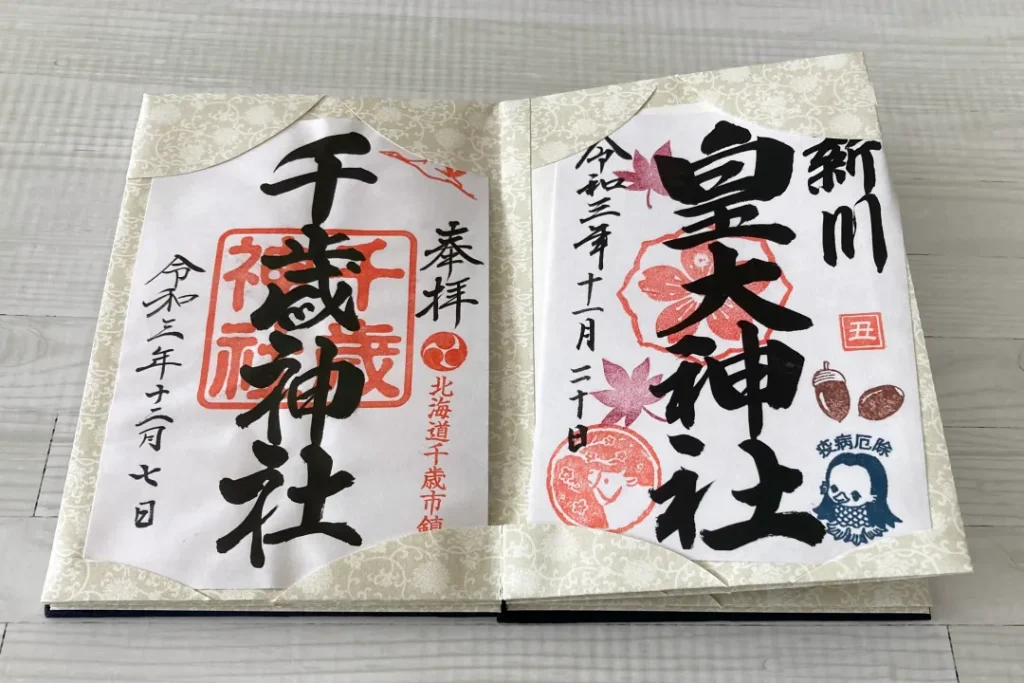 新川
丑
疫病厄除
皇大神社
令和三年十一月二十日
奉拝
北海道千歳市鎮
千歳神社
千歳
神社
令和三年十二月七日